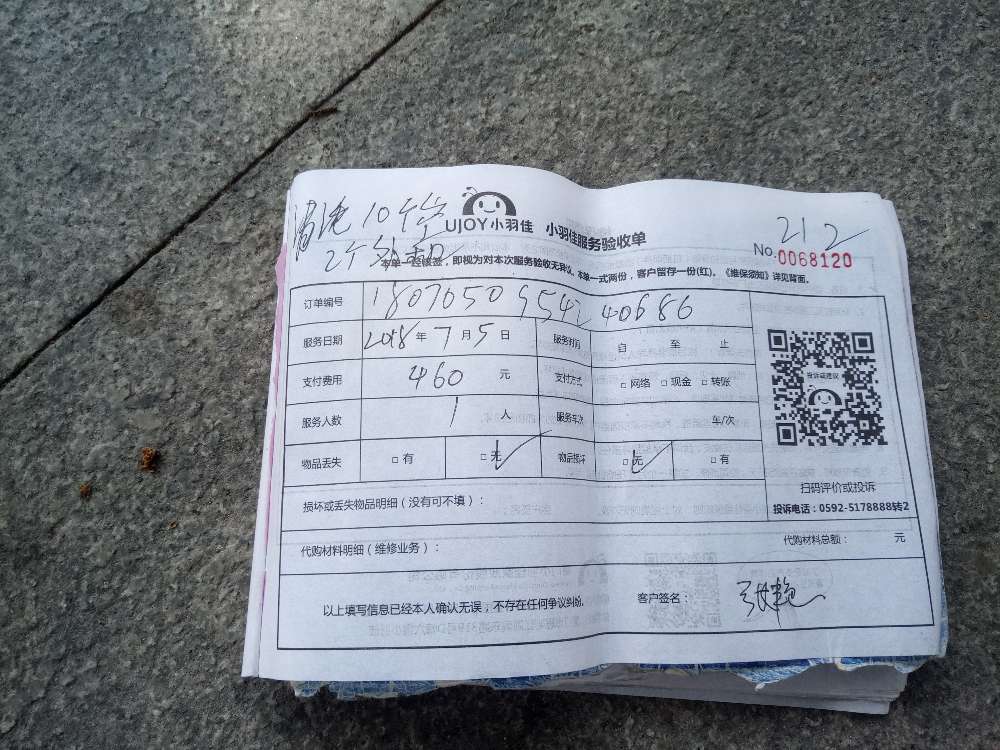 清洗10个
2个
212
UJOY小羽佳 小羽佳服务验收单
No.0068120
本单一经签签，即视为对本次服务验收无异议。本单一式两份，客户留存一份(红)。《维保须知》详见背面。
订单编号 180705095424 40686
服务日期 2018年7月5日 服务时间 自 至 止
支付费用 460 元 支付方式 □网络 □现金 □转账
服务人数 1 人 服务车次 车/次
物品丢失 □有 □无 ✓ 物品损坏 □无 ✓ □有
投诉或建议
扫码评价或投诉
投诉电话：0592-5178888转2
损坏或丢失物品明细（没有可不填）：
代购材料明细（维修业务）： 代购材料总额： 元
以上填写信息已经本人确认无误，不存在任何争议纠纷。 客户签名： 张艳